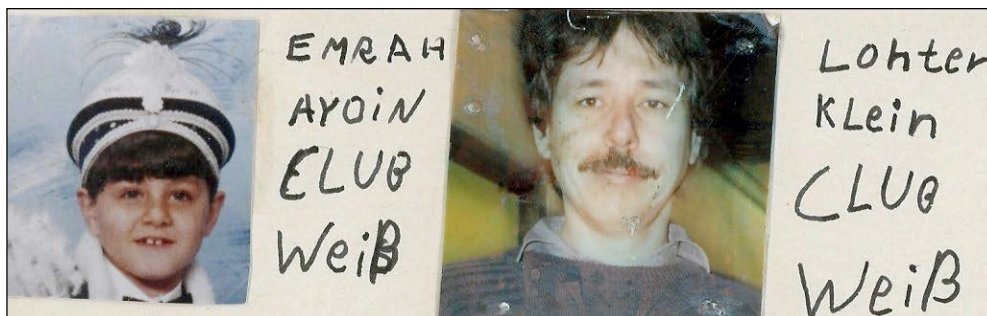 EMRAH
AYDiN
CLUB
Weiß
Lohter
KLein
CLUB
Weiß